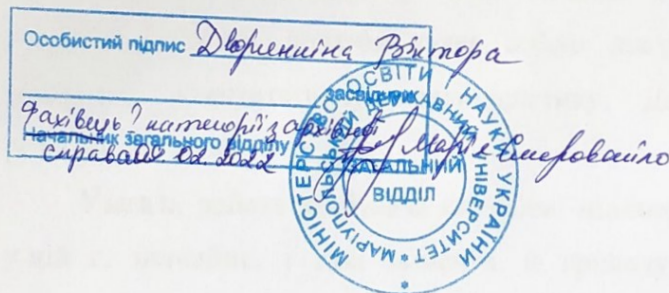 Особистий підпис Дворниніна Віктора
засвідчую
Фахівець І категорії з архівної
Начальник загального відділу Марія
справа 02.2022
МІНІСТЕРСТВО ОСВІТИ І НАУКИ УКРАЇНИ
МАРІУПОЛЬСЬКИЙ ДЕРЖАВНИЙ УНІВЕРСИТЕТ
ЗАГАЛЬНИЙ
ВІДДІЛ